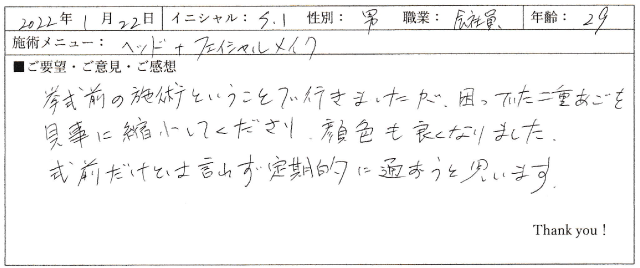 2022年 1月 22日 イニシャル： S.I 性別： 男 職業： 会社員 年齢： 29
施術メニュー： ヘッド＋フェイシャルメイク
■ご要望・ご意見・ご感想
挙式前の施術ということで行きましたが、困っていた二重あごを
見事に縮小してくださり、顔色も良くなりました。
式前だけとは言わず定期的に通おうと思います。
Thank you！